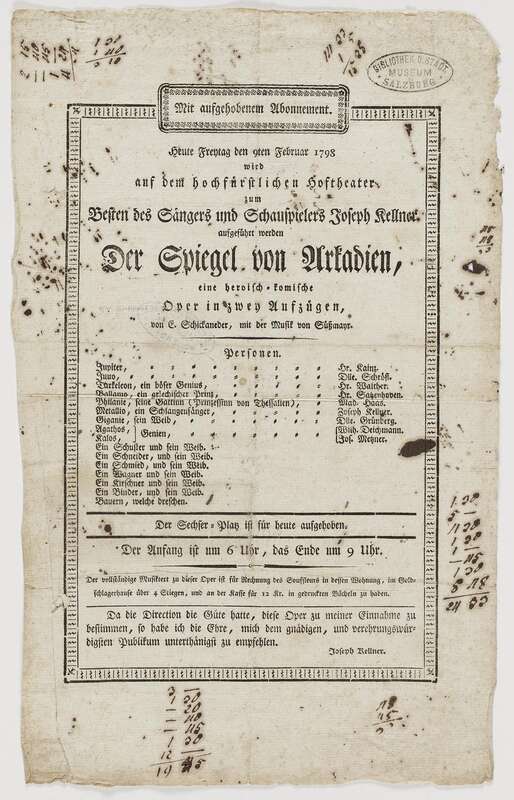 BIBLIOTHEK D. STÄDT.
MUSEUM
SALZBURG
Mit aufgehobenem Abonnement.
Heute Freytag den 9ten Februar 1798
wird
auf dem hochfürstlichen Hoftheater
zum
Besten des Sängers und Schauspielers Joseph Kellner
aufgeführt werden
Der Spiegel von Arkadien,
eine heroisch-komische
Oper in zwey Aufzügen,
von E. Schickaneder, mit der Musik von Süßmayr.
Personen.
Jupiter, Hr. Kainz.
Juno, Dlle. Schröfl.
Tarkeleon, ein böser Genius, Hr. Walther.
Ballamo, ein griechischer Prinz, Hr. Satzenhoven.
Philanie, seine Gattinn (Prinzessinn von Thessalien), Mad. Haas.
Metallio, ein Schlangenfänger, Joseph Kellner.
Giganie, sein Weib, Dlle. Grünberg.
Agathos, Genien, Wilh. Deichmann.
Kalos, Jos. Metzner.
Ein Schuster und sein Weib.
Ein Schneider, und sein Weib.
Ein Schmied, und sein Weib.
Ein Wagner und sein Weib.
Ein Kirschner und sein Weib.
Ein Binder, und sein Weib.
Bauern, welche dreschen.
Der Sechser-Platz ist für heute aufgehoben.
Der Anfang ist um 6 Uhr, das Ende um 9 Uhr.
Der vollständige Musiktext zu dieser Oper ist für Rechnung des Souffleurs in dessen Wohnung, im Gold-
schlagerhause über 4 Stiegen, und an der Kasse für 12 Kr. in gedruckten Bücheln zu haben.
Da die Direction die Güte hatte, diese Oper zu meiner Einnahme zu
bestimmen, so habe ich die Ehre, mich dem gnädigen, und verehrungswür-
digsten Publikum unterthänigst zu empfehlen.
Joseph Kellner.